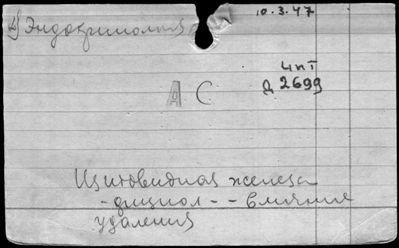 Эндокринология
10.3.47
ЧпТ
Д 2699
А С
Щитовидная железа
- физиол - - влияние
удаления